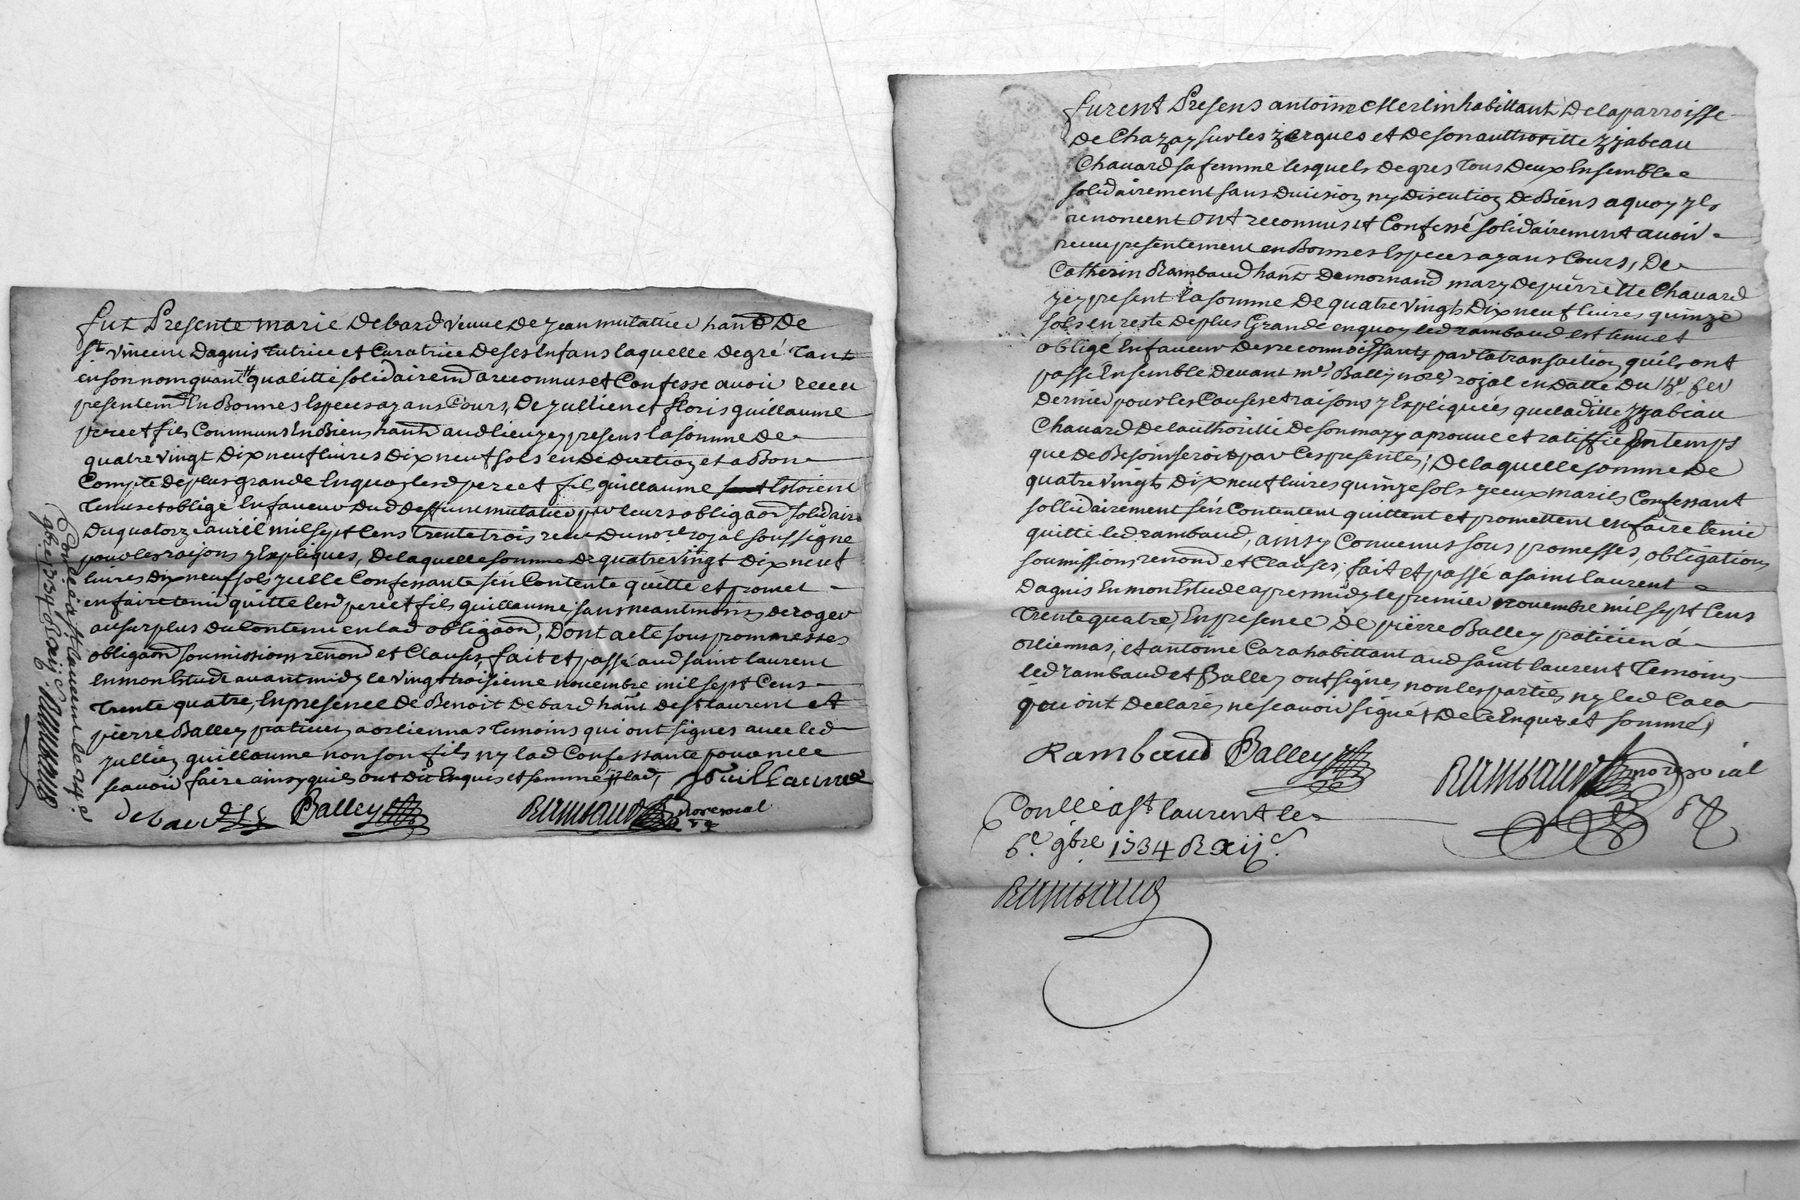 fut Presente marie Debard veuve de jean mulatier hant De
st vincent Dagnis tutrice et Curatrice De ses Enfans laquelle De gré tant
en son nom quen qualitté solidairemt a reconnu et Confessé avoir receu
presentemt En Bonnes Especes ayans Cours, De jullien et floris guillaume
pere et fils Communs En Biens hants aud lieu yey presens la somme De
quatre vingt Dix neuf livres Dix neuf sols en De Duction et a Bon
Compte De plus grande En quoy lesd pere et fils guillaume Estoient
tenus et obligé En faveur Dud Deffunt mulatier par leurs obligaon solidaire
Du quatorze avril mil sept Cens trente trois receu Du nore royal soussigné
pour les raisons y Expliqués, De laquelle somme De quatre vingt Dix neuf
livres Dix neuf sols ycelle Confessante sen Contente quitte et promet
en faire tenir quitte lesd pere et fils guillaume sans neantmoins De roger
au surplus Du Contenu en lad obligaon, Dont acte sous promesses
obligaon soumissions renond et Clauses, fait et passé aud saint laurent
En mon Estude avant midy le vingt troisieme novembre mil sept Cens
trente quatre, En presence De Benoit Debard hant De st laurent et
pierre Balley praticien a orliennas temoins qui ont signés avec led
jullien guillaume non son fils ny lad Confessante pour ne le
scavoir faire ainsy quils ont Dit Enquis et sommé
J Guillaume
debard
Balley
Rambaud nore roial
Conllé a st laurent le
9bre 1734
Rambaud
furent Presens antoine Merlin habittant De la parroisse
De Chazay sur les zergues et De son authoritte yzabeau
Chavard sa femme lesquels De gres tous Deux Ensemble
solidairement sans Division ny Discution De Biens a quoy yls
renoncent ont reconnus et Confessé solidairement avoir
receu presentement en Bonnes Especes ayans Cours, De
Catherin Rambaud hant De mornand mary De pierrette Chavard
yey present la somme De quatre vingts Dix neuf livres quinze
sols en reste De plus Grande en quoy led rambaud est tenu et
obligé En faveur Des reconnoissants par la transaction quils ont
passé Ensemble Devant me Balley nore royal en Datte Du fev
Dernier pour les Causes et raisons y Expliquées que laditte yzabeau
Chavard De lauthoritté De son mary aprouve et ratiffie En temps
que De Besoin seroit par Ces presentes; De laquelle somme De
quatre vingts Dix neuf livres quinze sols yceux mariés Confessant
sollidairement sen Contentent quittent et promettent en faire tenir
quitte led rambaud, ainsy Convenus sous promesses, obligations
soumissions renond et Clauses, fait et passé a saint laurent
Dagnis En mon Estude apres midy le premier novembre mil sept Cens
trente quatre, En presence De pierre Balley praticien a
orliennas, et antoine Cara habittant aud saint laurent temoins
led rambaud et Balley ont signés non les parties ny led Cara
qui ont Declarés ne scavoir signé, De ce Enquis et sommé,
Rambaud Balley
Rambaud nore roial
Conllé a st laurent le
6e 9bre 1734 R xij s
Rambaud